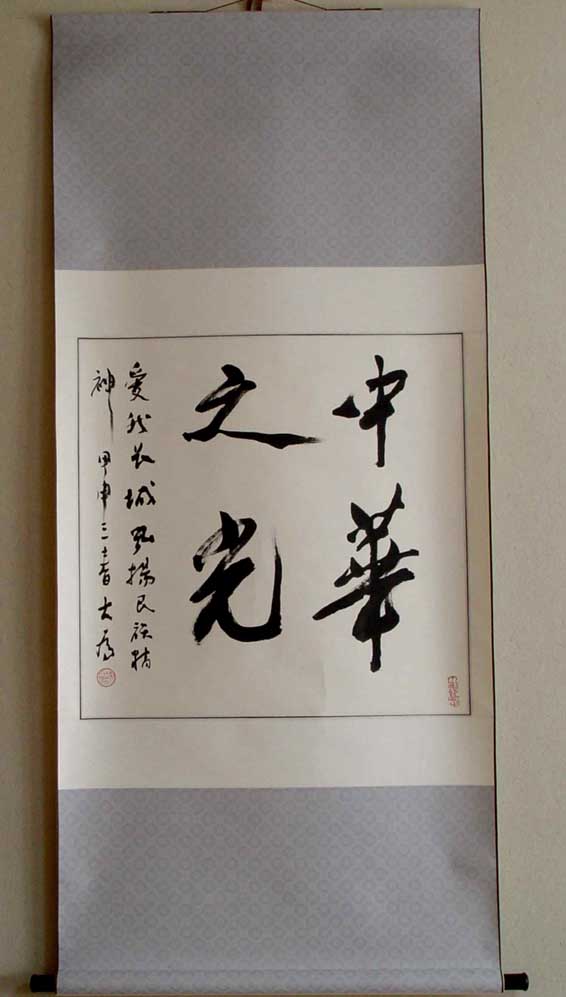 中華
之光
爱我长城弘揚民族精
神 甲申三春大为